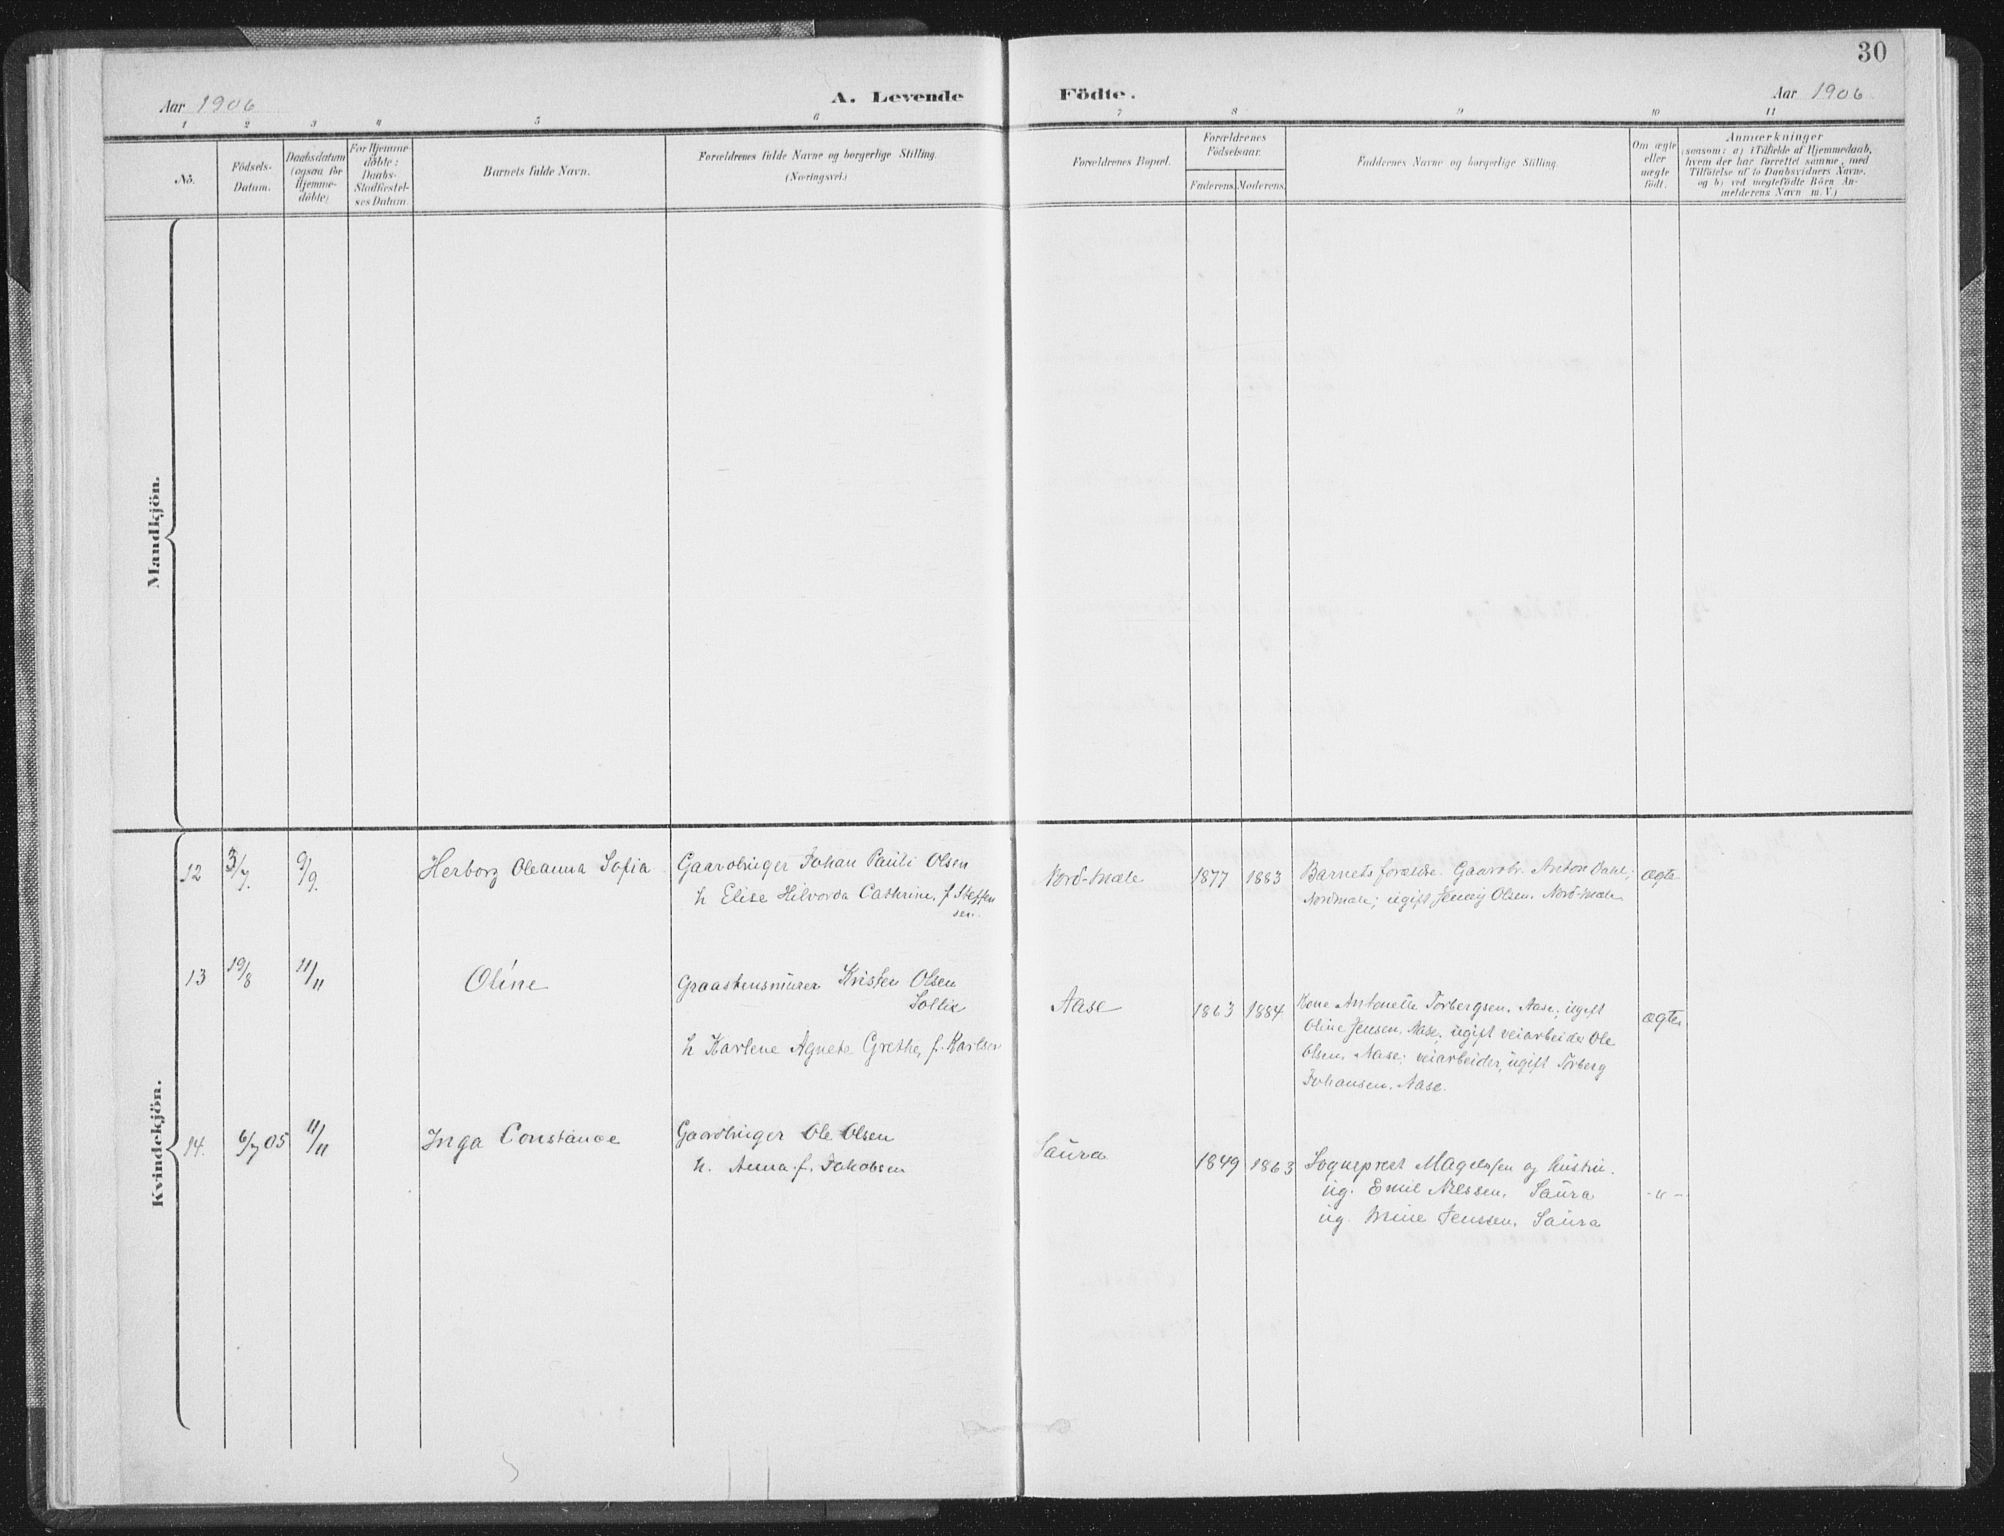 30
Aar 1906
A. Levende Födte.
Aar 1906
1 2 3 4 5 6 7 8 9 10 11
No.
Födsels-
Datum.
Daabsdatum
(ogsaa for
Hjemme-
döbte)
For Hjemme-
döbte:
Daabs-
Stadfæstel-
ses Datum.
Barnets fulde Navn.
Forældrenes fulde Navne og borgerlige Stilling.
(Næringsvei.)
Forældrenes Bopæl.
Forældrenes
Födselsaar.
Faderens. Moderens.
Faddernes Navne og borgerlige Stilling.
Om ægte
eller
uægte
födt.
Anmærkninger
(saasom: a) i Tilfælde af Hjemmedaab,
hvem der har forrettet samme, med
Tilföielse af to Daabsvidners Navne.
og b) ved uægtefödte Börn An-
melderens Navn m. V.)
Mandkjön.
Kvindekjön.
12 3/7. 9/9. Herborg Oleanna Sofia Gaardbruger Johan Pauli Olsen
h Elise Hilvorda Cathrine, f. Steffen
sen.
Nord-Mæle 1877 1883 Barnets forældre. Gaardbr. Anton Dahl;
Nordmæle; ugift Jenny Olsen. Nord-Mæle
ægte
13 19/8 11/11 Oline Graastensmurer Kristen Olsen
Sollie
h Karlene Agnete Grethe, f. Karlsen
Aase 1863 1884 Kone Antonette Torbergsen, Aase; ugift
Oline Jensen, Aase; ugift veiarbeider Ole
Olsen, Aase; veiarbeider, ugift Torberg
Johansen, Aase.
ægte
14. 6/7 05 11/11 Inga Constance Gaardbruger Ole Olsen
h. Anna f. Jakobsen
Saura 1849 1863 Sogneprest Magelssen og hustru.
ug. Emil Nilssen, Saura
ug. Mine Jenssen, Saura
-"-